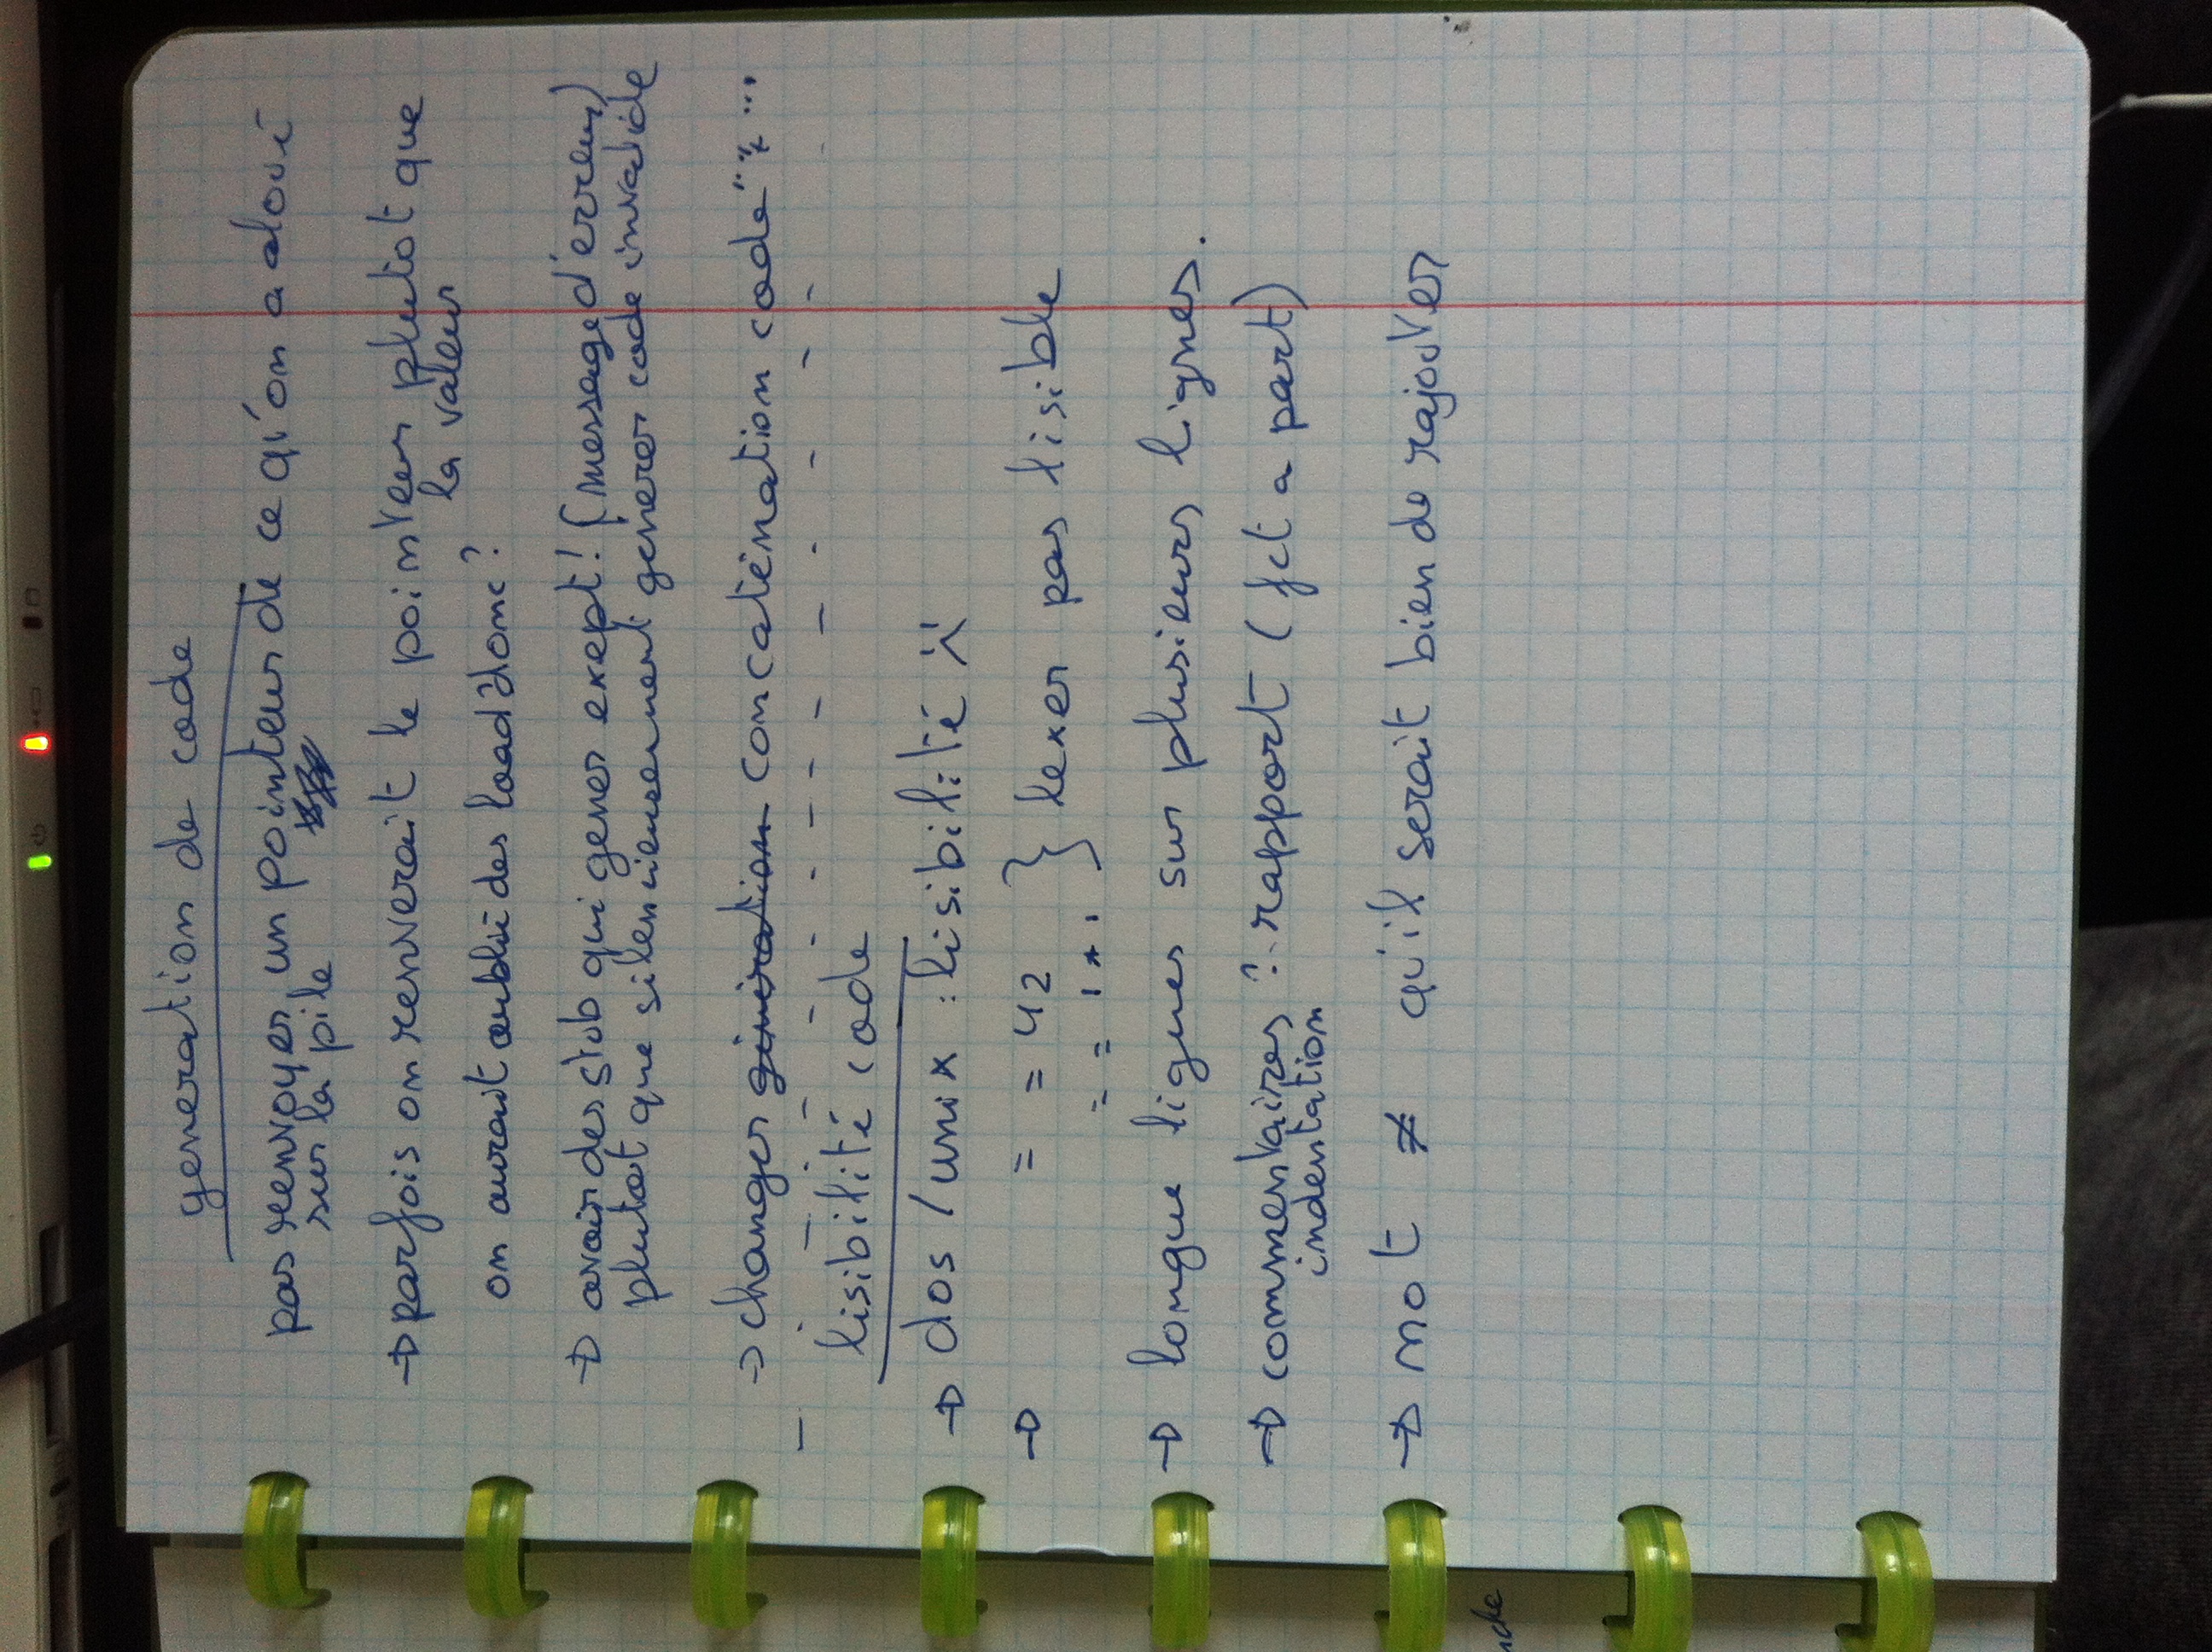 generation de code
pas renvoyer un pointeur de ce qu'on a aloué
sur la pile
→ parfois on renverait le pointeur plutot que
la valeur
on aurait oublié des load donc ?
→ avoir des stub qui gener exept! (message d'erreur)
plutot que silencieusement générer code invalide
→ changer génération concaténation code " " + ...
lisibilité code
→ dos / unix : lisibilité :(
→ = = 42 } lexer pas lisible
= = '*'
→ longue lignes sur plusieurs lignes.
→ commentaires ? rapport (fct a part)
indentation
→ not ≠ qu'il serait bien de rajouter